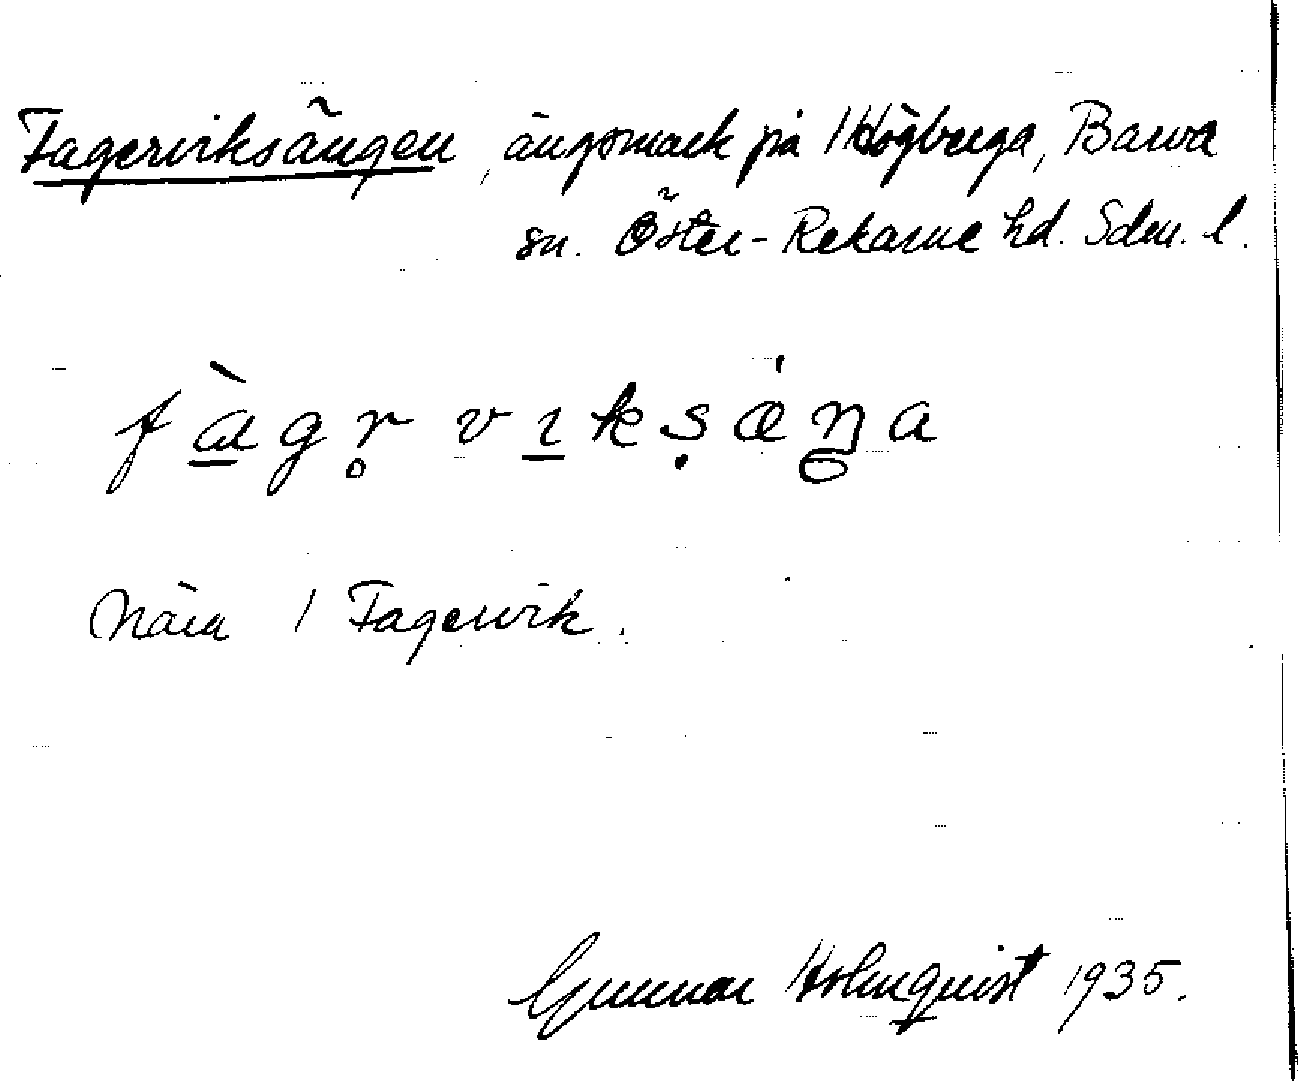 Fagerviksängen, ängsmark på /Högberga, Barva
sn. Öster-Rekarne hd. Sdm. l.
fàgr̥ vıkṣæŋa
Nära / Fagervik.
Gunnar Holmquist 1935.